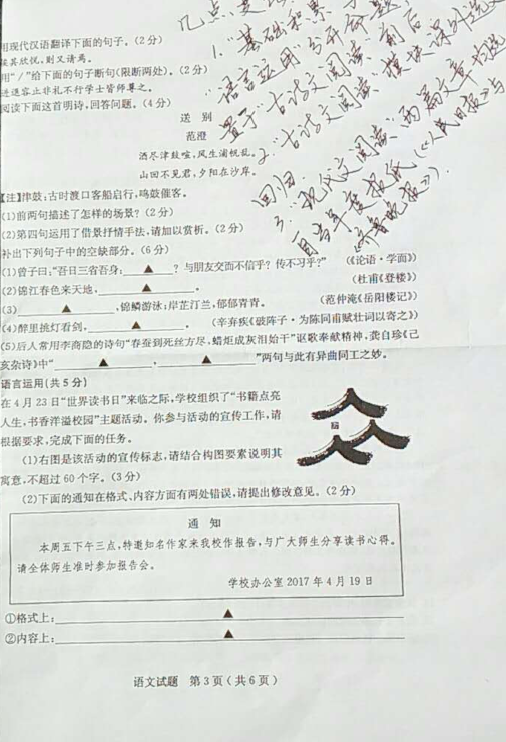 几点变
1."基础积累
"语言运用"
置于"古诗文阅读"前后
2."古诗文阅读"
回归
3."现代文阅读"两篇文章均选
自当年度报纸《人民日报》与
《齐鲁晚报》。
用现代汉语翻译下面的句子。(2分)
接其欣悦,则又请焉。
用"/"给下面的句子断句(限断两处)。(2分)
进退容止非礼不行学士皆师尊之。
阅读下面这首明诗,回答问题。(4分)
送 别
范澄
酒尽津鼓喧,风生蒲帆乱。
山回不见君,夕阳在沙岸。
【注】津鼓:古时渡口客船启行,鸣鼓催客。
(1)前两句描述了怎样的场景?(2分)
(2)第四句运用了借景抒情手法,请加以赏析。(2分)
补出下列句子中的空缺部分。(6分)
(1)曾子曰:"吾日三省吾身:▲?与朋友交而不信乎?传不习乎?" (《论语·学而》)
(2)锦江春色来天地,▲。 (杜甫《登楼》)
(3)▲,锦鳞游泳;岸芷汀兰,郁郁青青。 (范仲淹《岳阳楼记》)
(4)醉里挑灯看剑,▲。 (辛弃疾《破阵子·为陈同甫赋壮词以寄之》)
(5)后人常用李商隐的诗句"春蚕到死丝方尽,蜡炬成灰泪始干"讴歌奉献精神,龚自珍《己
亥杂诗》中"▲,▲"两句与此有异曲同工之妙。
语言运用(共5分)
在4月23日"世界读书日"来临之际,学校组织了"书籍点亮
人生,书香洋溢校园"主题活动。你参与活动的宣传工作,请
根据要求,完成下面的任务。
(1)右图是该活动的宣传标志,请结合构图要素说明其
寓意,不超过60个字。(3分)
(2)下面的通知在格式、内容方面有两处错误,请提出修改意见。(2分)
通 知
本周五下午三点,特邀知名作家来我校作报告,与广大师生分享读书心得。
请全体师生准时参加报告会。
学校办公室2017年4月19日
①格式上:▲
②内容上:▲
语文试题 第3页(共6页)